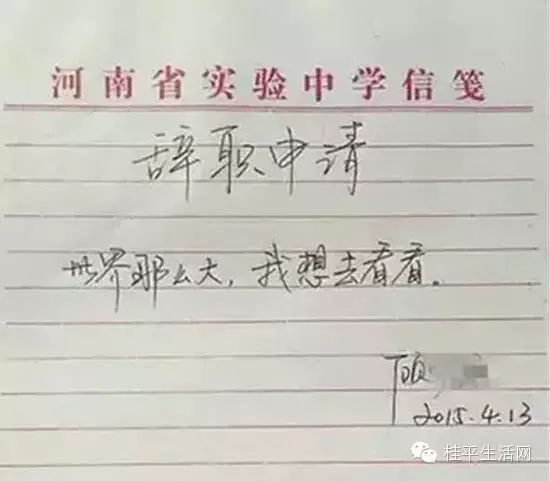 河南省实验中学信笺
辞职申请
世界那么大，我想去看看。
顾
2015.4.13
桂平生活网